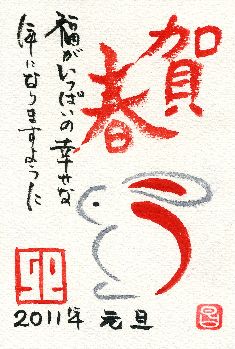 賀春
福がいっぱいの幸せな
年になりますように
2011年 元旦